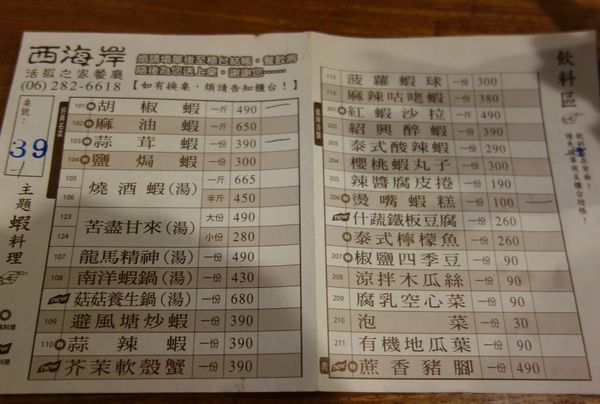 西海岸
活蝦之家餐廳
(06) 282-6618
煩請填單後至櫃台結帳，餐飲將
隨後為您送上桌，謝謝您……
【如有換桌，煩請告知櫃台！】
桌號：
39
主題蝦料理
101 胡椒蝦 一斤 490 一
102 麻油蝦 一份 650
103 蒜茸蝦 一份 390 一
104 鹽焗蝦 一份 300
105 燒酒蝦(湯) 一斤 665
106 半斤 450
123 苦盡甘來(湯) 大份 490
124 小份 280
107 龍馬精神(湯) 一份 490
108 南洋蝦鍋(湯) 一份 430
new 菇菇養生鍋(湯) 一份 680
109 避風塘炒蝦 一份 390
110 蒜辣蝦 一份 390
new 芥茉軟殼蟹 一份 390
112 菠蘿蝦球 一份 300
113 麻辣咕咾蝦 一份 380
201 紅蝦沙拉 一斤 490
202 紹興醉蝦 一份 390
203 泰式酸辣蝦 一份 290
204 櫻桃蝦丸子 一份 300
205 辣醬腐皮捲 一份 190
206 燙嘴蝦糕 一份 100 一
new 什蔬鐵板豆腐 一份 260
new 泰式檸檬魚 一份 260
207 椒鹽四季豆 一份 90
208 涼拌木瓜絲 一份 90
209 腐乳空心菜 一份 90
210 泡菜 一份 30
211 有機地瓜葉 一份 90
new 蔗香豬腳 一份 490
飲料區